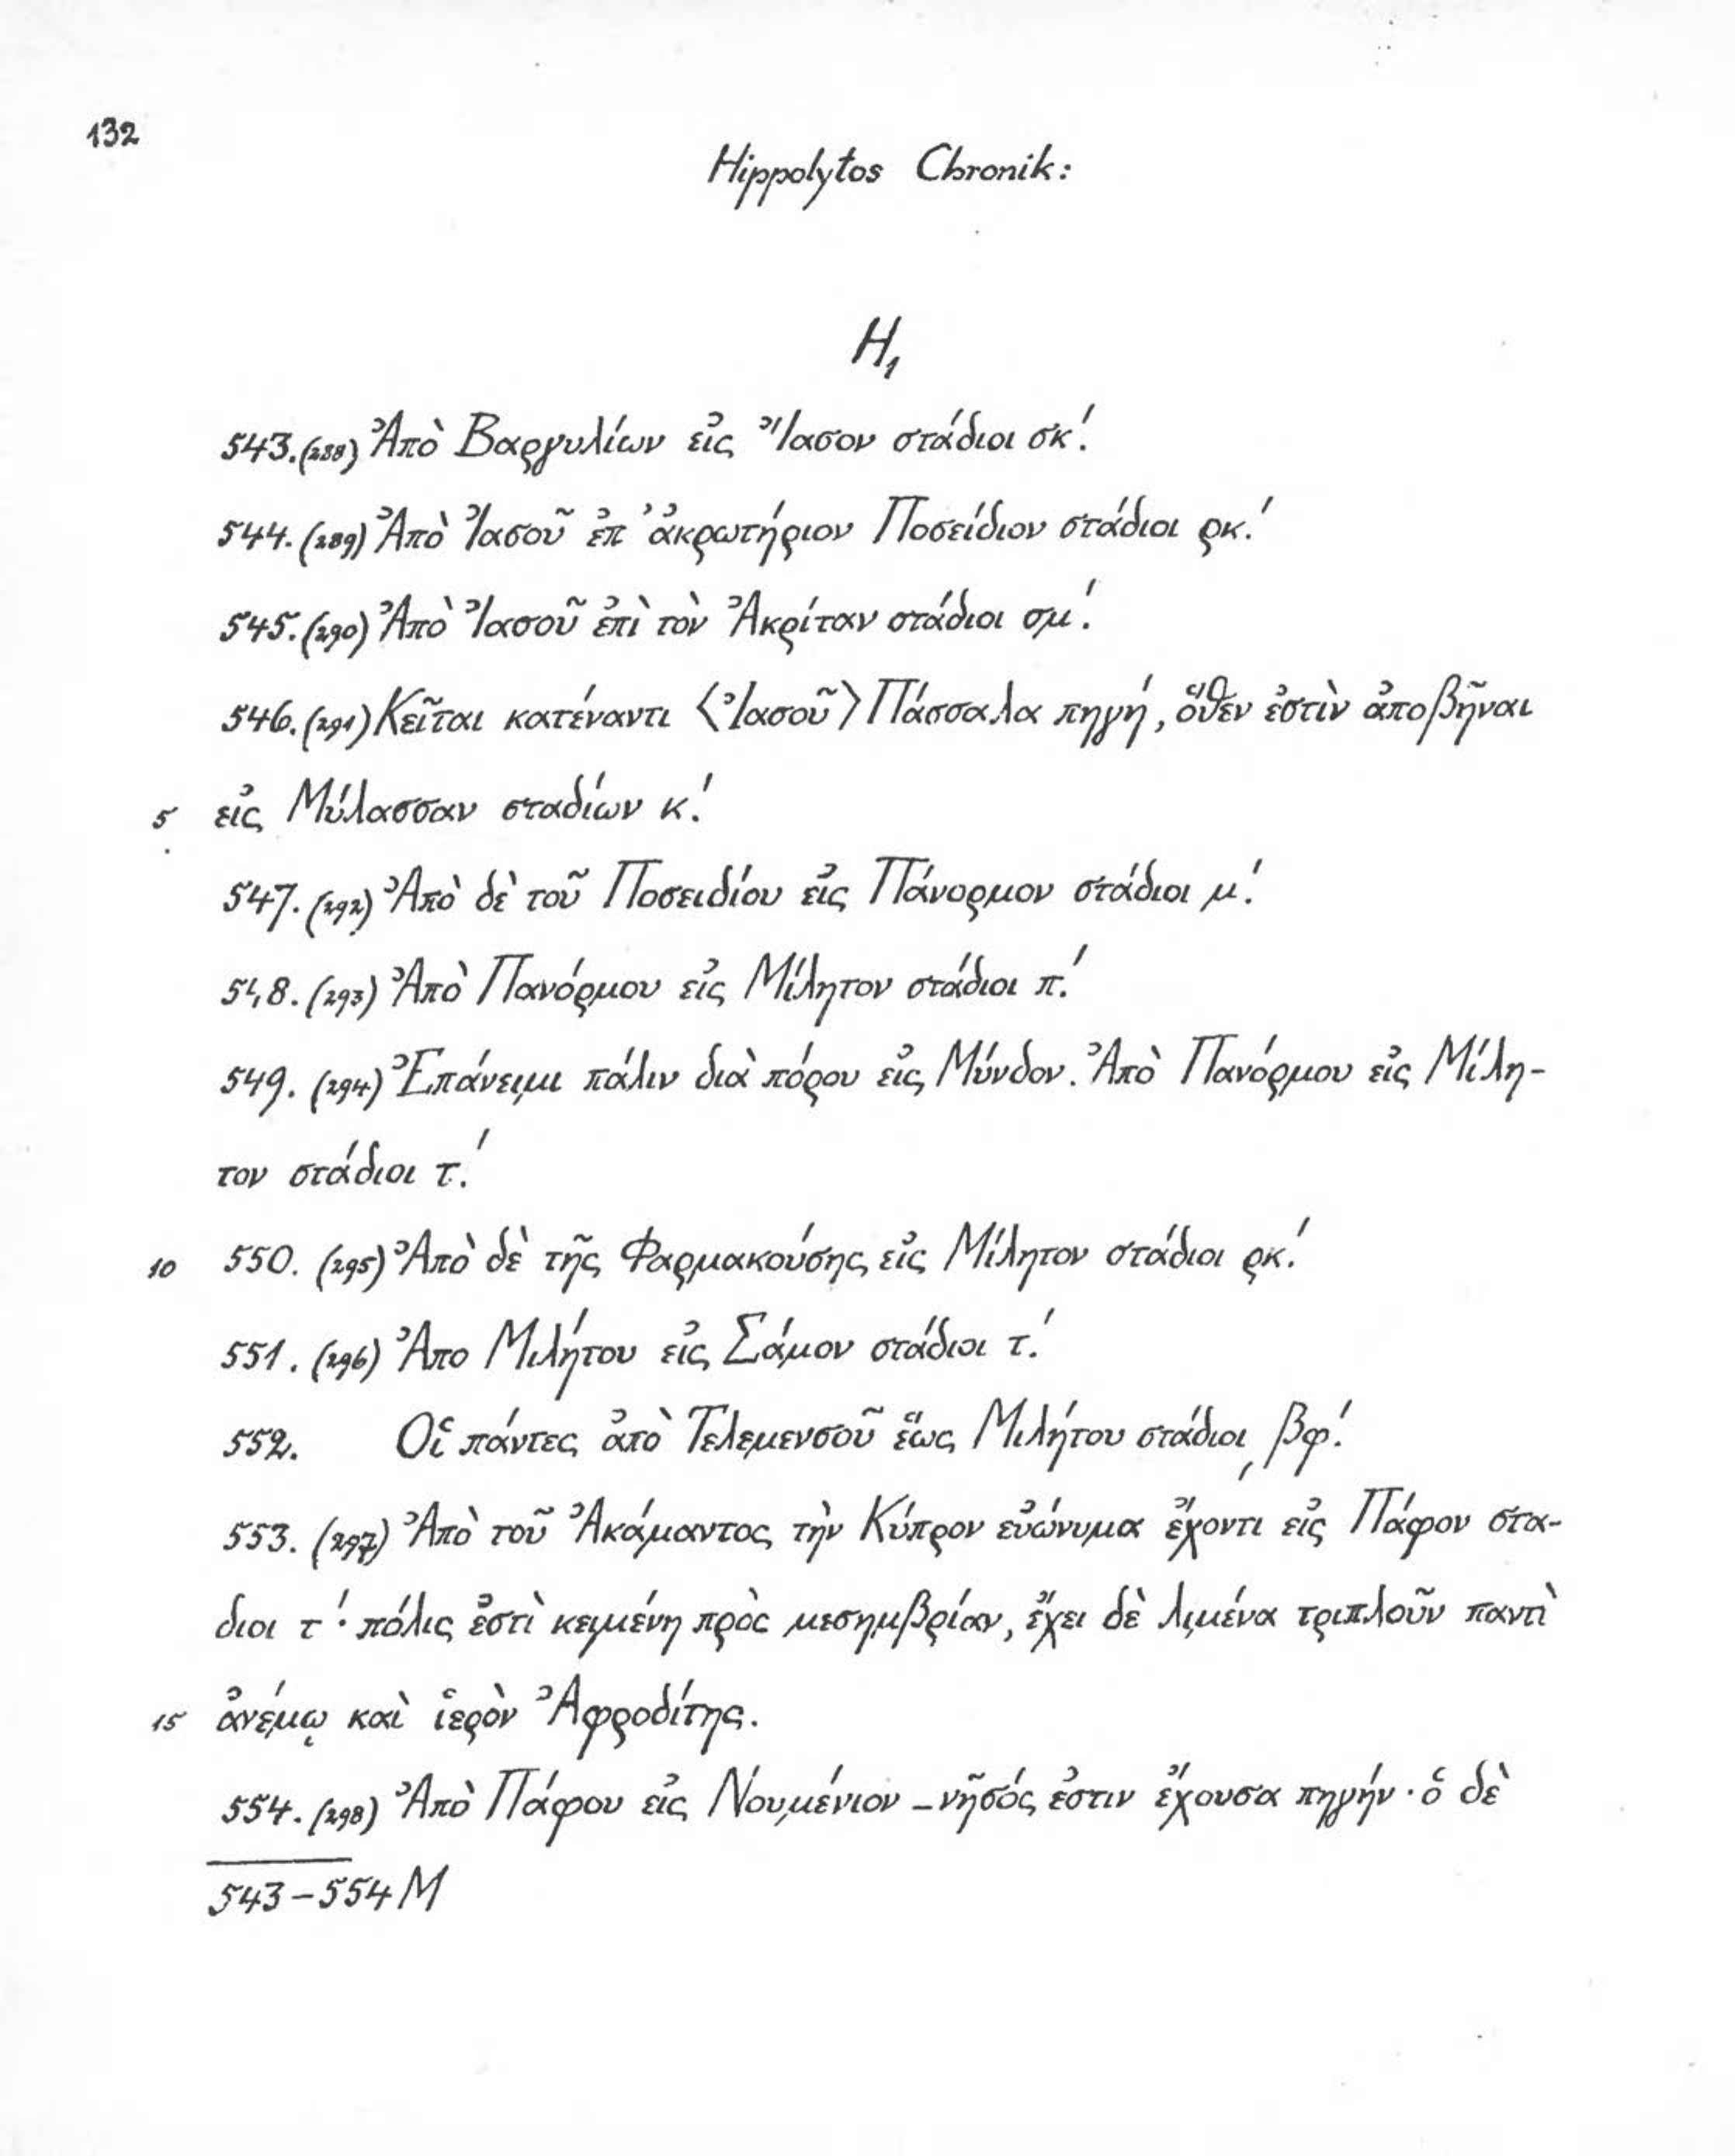 132
Hippolytos Chronik:
H₁
543.(288) Ἀπὸ Βαργυλίων εἰς Ἴασον στάδιοι σκ΄.
544.(289) Ἀπὸ Ἰασοῦ ἐπ᾽ ἀκρωτήριον Ποσείδιον στάδιοι ρκ΄.
545.(290) Ἀπὸ Ἰασοῦ ἐπὶ τὸν Ἀκρίταν στάδιοι σμ΄.
546.(291) Κεῖται κατέναντι 〈Ἰασοῦ〉 Πάσσαλα πηγή, ὅθεν ἐστὶν ἀποβῆναι
5 εἰς Μύλασσαν σταδίων κ΄.
547.(292) Ἀπὸ δὲ τοῦ Ποσειδίου εἰς Πάνορμον στάδιοι μ΄.
548.(293) Ἀπὸ Πανόρμου εἰς Μίλητον στάδιοι π΄.
549.(294) Ἐπάνειμι πάλιν διὰ πόρου εἰς Μύνδον. Ἀπὸ Πανόρμου εἰς Μίλη-
τον στάδιοι τ΄.
10 550.(295) Ἀπὸ δὲ τῆς Φαρμακούσης εἰς Μίλητον στάδιοι ρκ΄.
551.(296) Ἀπο Μιλήτου εἰς Σάμον στάδιοι τ΄.
552. Οἱ πάντες ἀπὸ Τελεμενσοῦ ἕως Μιλήτου στάδιοι ͵βφ΄.
553.(297) Ἀπὸ τοῦ Ἀκάμαντος τὴν Κύπρον εὐώνυμα ἔχοντι εἰς Πάφον στα-
διοι τ΄· πόλις ἐστὶ κειμένη πρὸς μεσημβρίαν, ἔχει δὲ λιμένα τριπλοῦν παντὶ
15 ἀνέμῳ καὶ ἱερὸν Ἀφροδίτης.
554.(298) Ἀπὸ Πάφου εἰς Νουμένιον – νῆσός ἐστιν ἔχουσα πηγήν· ὁ δὲ
543–554 M